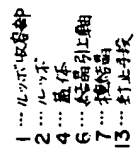 1…ルツボ収容部
2…ルツボ
4…蓋体
6…結晶引上軸
7…種結晶
13…封止手段